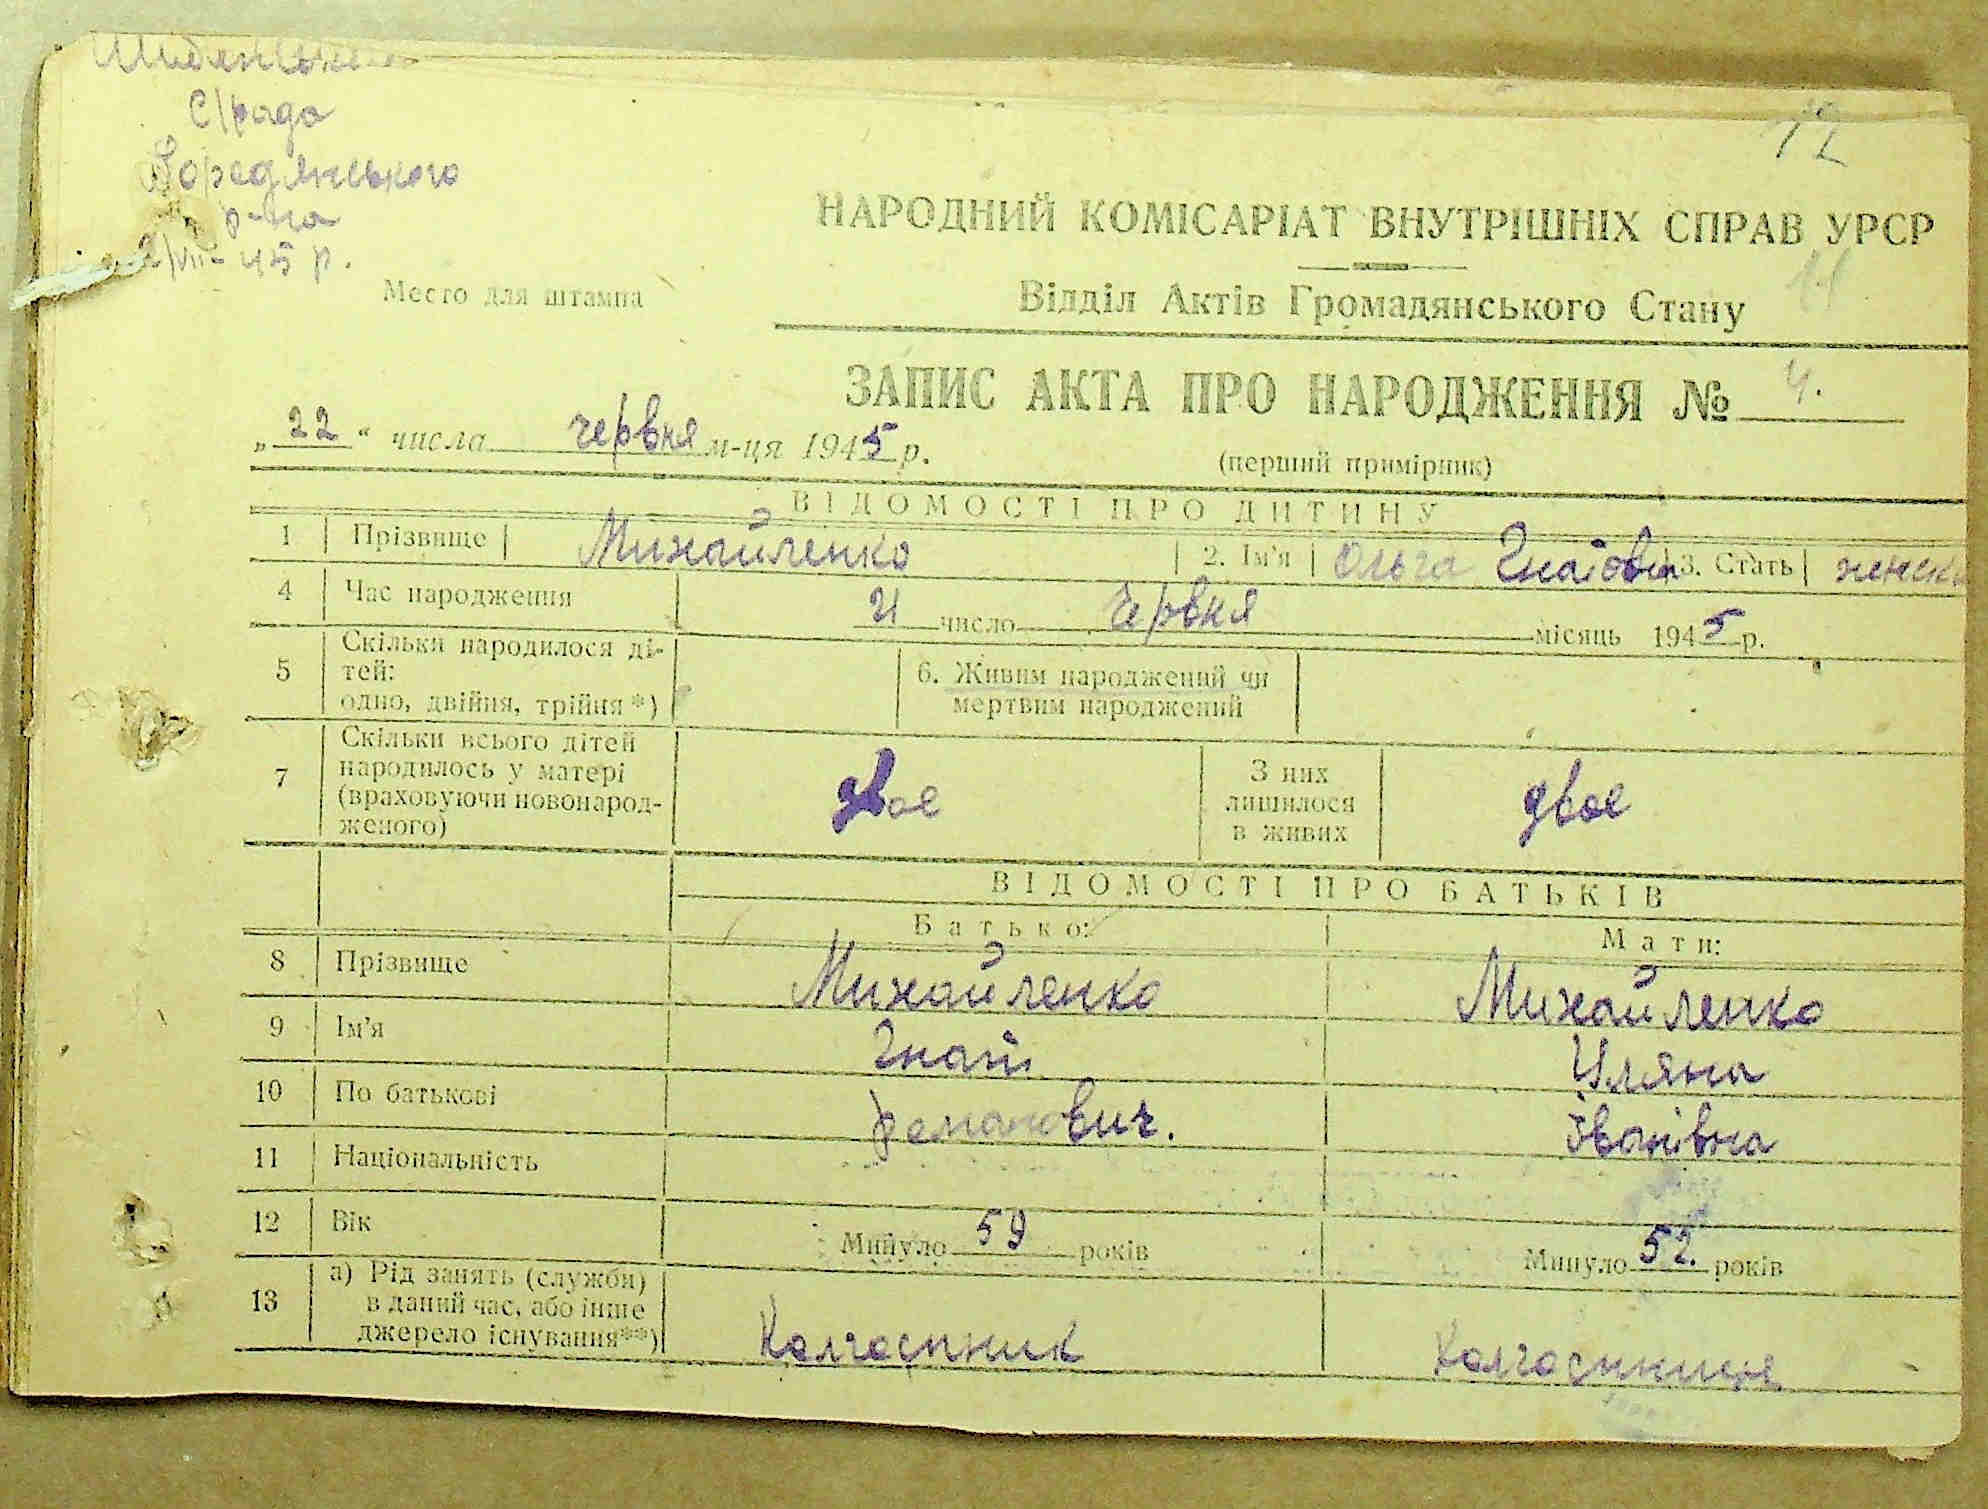 С/рада
Бородянського
р-на
2/VII-45 р.
12
Место для штампа
НАРОДНИЙ КОМІСАРІАТ ВНУТРІШНІХ СПРАВ УРСР
11
Відділ Актів Громадянського Стану
ЗАПИС АКТА ПРО НАРОДЖЕННЯ № 4.
„22“ числа червня м-ця 1945 р.
(перший примірник)
ВІДОМОСТІ ПРО ДИТИНУ
1 Прізвище Михайленко 2. Ім'я Ольга Гнатовна 3. Стать женск
4 Час народження 21 число червня місяць 1945 р.
5 Скільки народилося ді-
тей:
одно, двійня, трійня*)
6. Живим народжений чи
мертвим народжений
7 Скільки всього дітей
народилось у матері
(враховуючи новонарод-
женого)
двое
З них
лишилося
в живих
двое
ВІДОМОСТІ ПРО БАТЬКІВ
Батько: Мати:
8 Прізвище Михайленко Михайленко
9 Ім'я Гнат Уляна
10 По батькові романович. Іванівна
11 Національність
12 Вік Минуло 59 років Минуло 52. років
13 а) Рід занять (служби)
в даний час, або інше
джерело існування**)
Колгоспник Колгоспниця